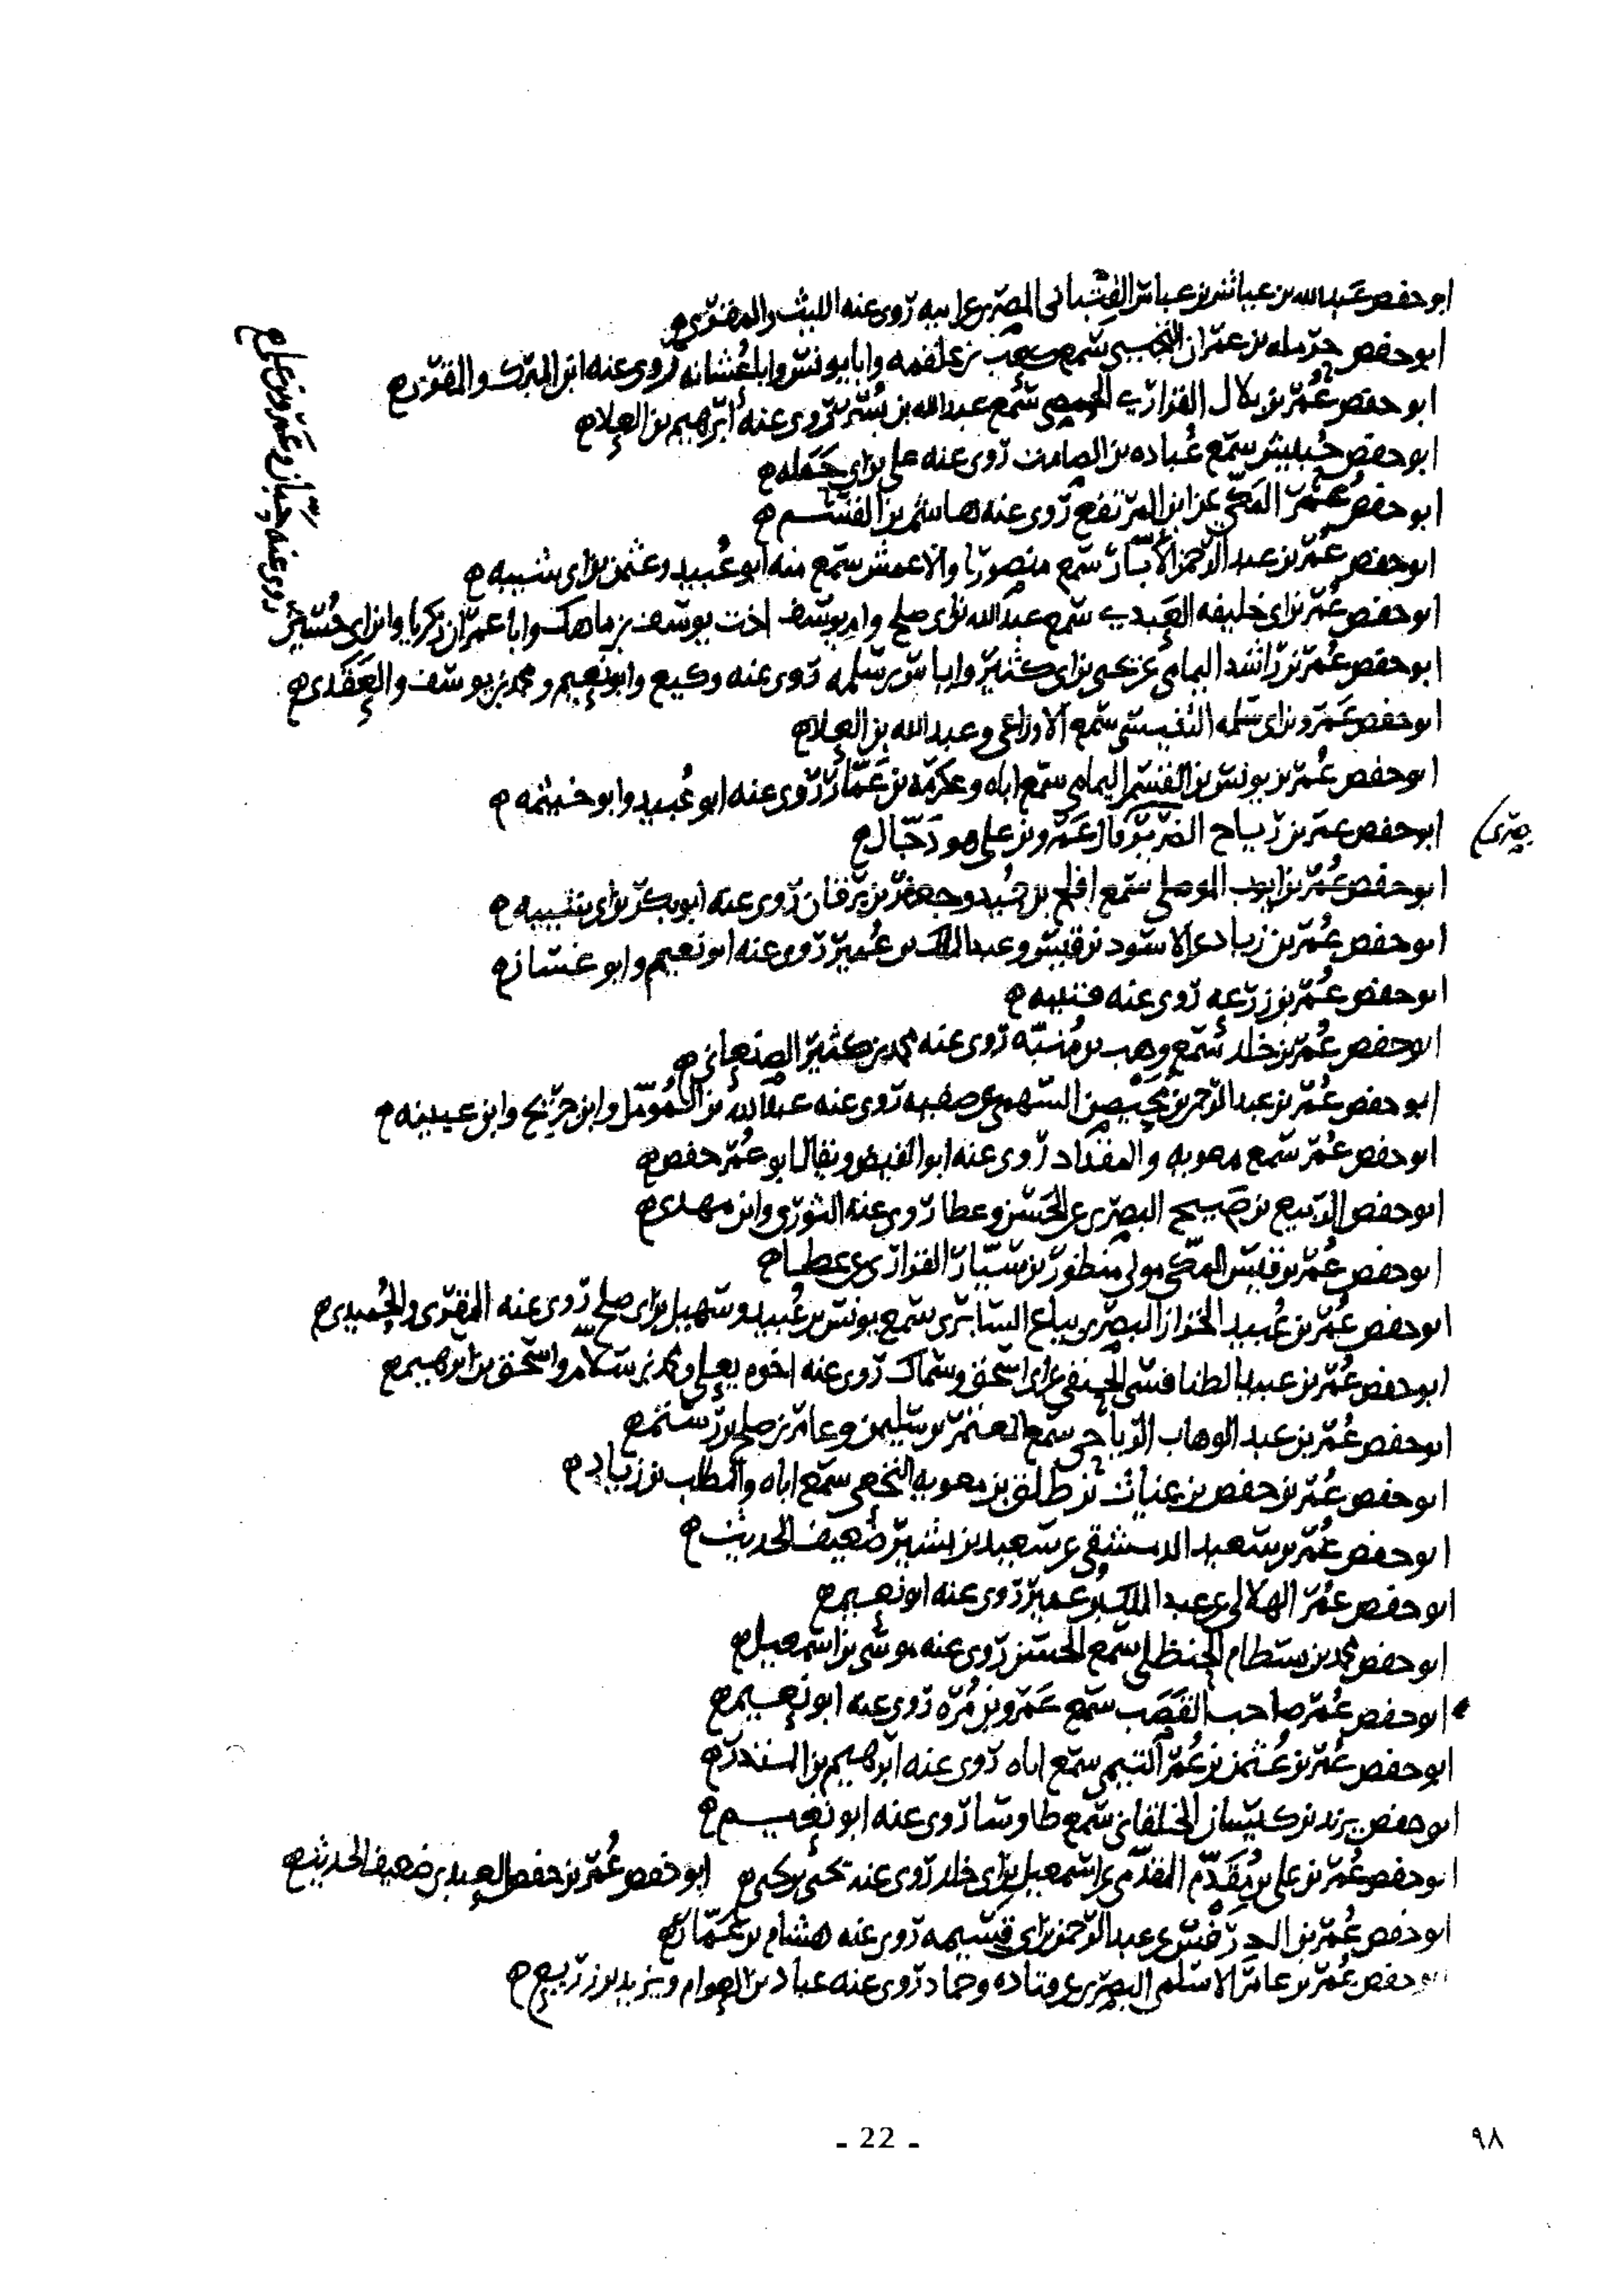 ابو حفص عبد الله بن عياش بن عباس القتباني المصري عن ابيه روى عنه الليث والمقرئ
ابو حفص حرمله بن عمران التجيبي سمع كعب بن علقمه وابا يونس وابا عشانه روى عنه ابن المبرك والمقرئ
ابو حفص عمر بن بلال الفزاري الحمصي سمع عبد الله بن بسر روى عنه ابرهيم بن العلا
ابو حفص حبيش سمع عباده بن الصامت روى عنه على بن ابي حمله
ابو حفص عمر المكي عن ابن المرتفع روى عنه هاشم بن القسم
ابو حفص عمر بن عبد الرحمن الأبار سمع منصورا والاعمش سمع منه ابو عبيد وعثمن بن ابي شيبه
ابو حفص عمر بن ابي خليفه العبدي سمع عبد الله بن ابي صلح وام يوسف اخت يوسف بن ماهك وابا عمران زكريا وابن ابي حسين
روى عنه حبان وعمرو بن علي
ابو حفص عمر بن راشد اليمامي عن يحيى بن ابي كثير واياس بن سلمه روى عنه وكيع وابو نعيم ومحمد بن يوسف والعقدي
ابو حفص عمرو بن ابي سلمه التنيسي سمع الاوزاعي وعبد الله بن العلا
ابو حفص عمر بن يونس بن القسم اليمامي سمع اباه وعكرمه بن عمار روى عنه ابو عبيد وابو خيثمه
ابو حفص عمر بن رياح الضرير قال عمرو بن علي هو دجال
بصري
ابو حفص عمر بن ايوب الموصلي سمع افلح بن حميد وجعفر بن برقان روى عنه ابو بكر بن ابي شيبه
ابو حفص عمر بن زياد عن الاسود بن قيس وعبد الملك بن عمير روى عنه ابو نعيم وابو غسان
ابو حفص عمر بن زرعه روى عنه قتيبه
ابو حفص عمر بن خلد سمع وهب بن منبه روى عنه محمد بن كثير الصنعاني
ابو حفص عمر بن عبد الرحمن بن محيصن السهمي عن صفيه روى عنه عبد الله بن المؤمل وابن جريج وابن عيينه
ابو حفص عمر سمع معويه والمقداد روى عنه ابو الفيض ويقال ابو عمر حفص
ابو حفص الربيع بن صبيح البصري عن الحسن وعطا روى عنه الثوري وابن مهدي
ابو حفص عمر بن قيس المكي مولى منظور بن سيار الفزاري عن عطا
ابو حفص عمر بن عبيد الخزاز البصري بياع السابري سمع يونس بن عبيد وسهيل بن ابي صلح روى عنه المقرئ والحميدي
ابو حفص عمر بن عبيد الطنافسي الحنفي عن ابي اسحق وسماك روى عنه اخوه يعلى ومحمد بن سلام واسحق بن ابرهيم
ابو حفص عمر بن عبد الوهاب الرياحي سمع المعتمر بن سليمن وعامر بن صلح بن رستم
ابو حفص عمر بن حفص بن غياث بن طلق بن معويه النخعي سمع اباه والمطلب بن زياد
ابو حفص عمر بن سعيد الدمشقي عن سعيد بن بشير ضعيف الحديث
ابو حفص عمر الهلالي عن عبد الملك بن عمير روى عنه ابو نعيم
ابو حفص محمد بن بسطام الحنظلي سمع الحسن روى عنه موسى بن اسمعيل
ابو حفص عمر صاحب القصب سمع عمرو بن مره روى عنه ابو نعيم
ابو حفص عمر بن عثمن بن عمر التيمي سمع اباه روى عنه ابرهيم بن المنذر
ابو حفص يزيد بن كيسان الخلقاني سمع طاوسا روى عنه ابو نعيم
ابو حفص عمر بن علي بن مقدم المقدمي عن اسمعيل بن ابي خلد روى عنه يحيى بن يحيى ابو حفص عمر بن حفص العبدي ضعيف الحديث
ابو حفص عمر بن الدرفس عن عبد الرحمن بن ابي قسيمه روى عنه هشام بن عمار
حفص عمر بن عامر الاسلمي البصري عن قتاده وحماد روى عنه عباد بن العوام ويزيد بن زريع
- 22 -
٩٨